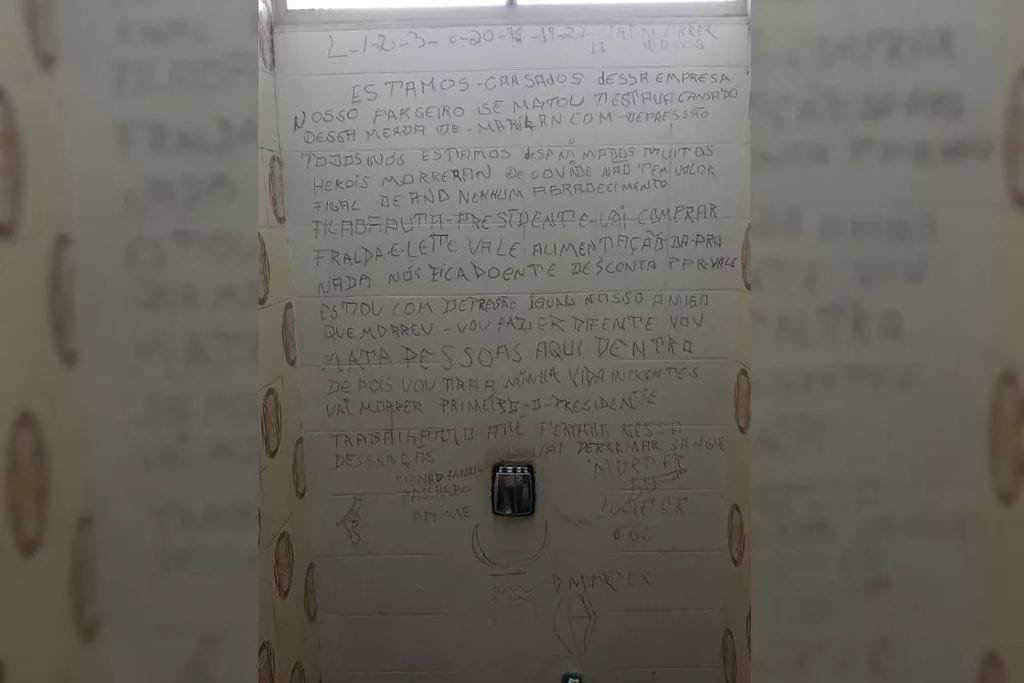 L-1-2-3-6-20- -19-22- VAI MORRER
13 TODOS
ESTAMOS-CANSADOS dESSA EMPRESA
NOSSO PARCEIRO SE MATOU ESTAVA CANSADO
DESSA MERDA DE- COM-DEPRESSÃO
TODOS NOS ESTAMOS dESANIMADOS MUITOS
HEROIS MORRERAN DE COVIDE NÃO TEM VALOR
FINAL DE ANO NENHUM AGRADECIMENTO
FILADAPUTA-PRESIDENTE-VAI COMPRAR
FRALDA-E-LEITE VALE ALIMENTAÇÃO DA-PRA
NADA NOS FICADOENTE DESCONTA VALE
ESTOU COM DEPRESÃO IGUAL NOSSO AMIGO
QUE MORREU-VOU FAZER DIFENTE VOU
MATA PESSOAS AQUI DENTRO
DEPOIS VOU TIRAR MINHA VIDA INOCENTES
VAI MORRER PRIMEIRO-O-PRESIDENTE
TRABAIHANDO ATE FERIADO NESSA
DESGRAÇA VAI DERRAMAR SANGUE
TENHO FAMILIA
PASSANDO
FOME
LUCIFER
666